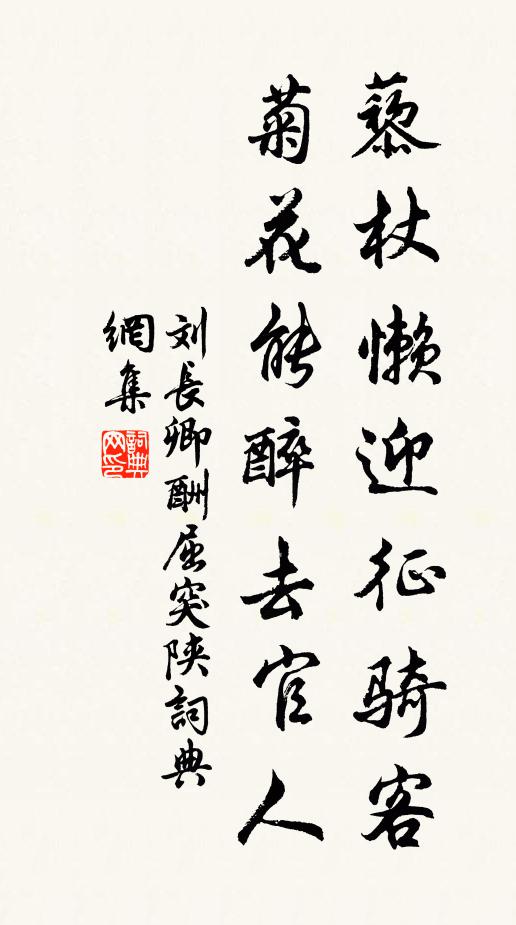 藜杖懒迎征骑客
菊花能醉去官人
刘長卿酬屈突陝詞典
網集
詞典网印